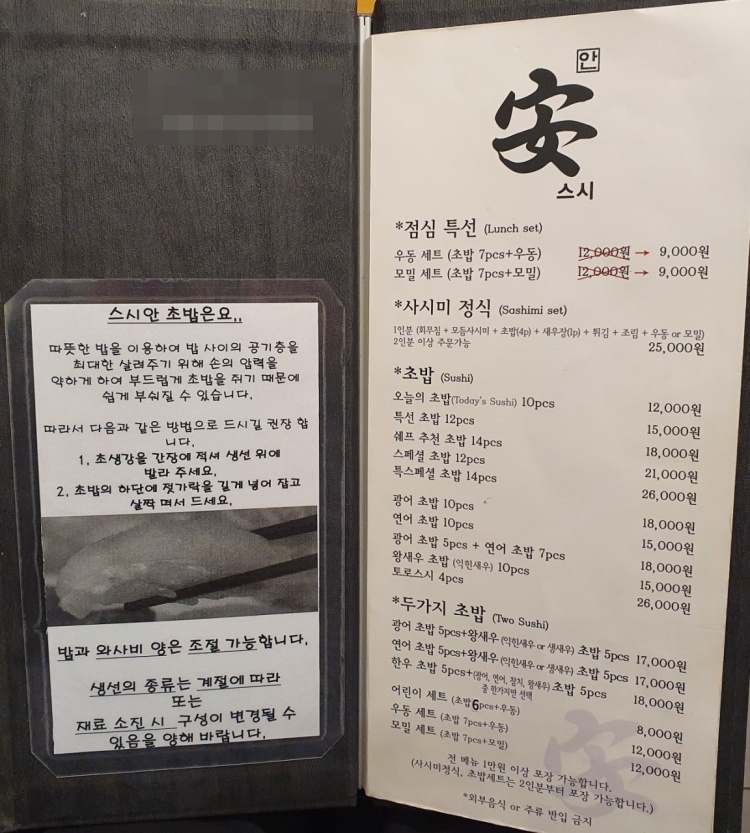 스시안 초밥은요..
따뜻한 밥을 이용하여 밥 사이의 공기층을
최대한 살려주기 위해 손의 압력을
약하게 하여 부드럽게 초밥을 쥐기 때문에
쉽게 부숴질 수 있습니다.
따라서 다음과 같은 방법으로 드시길 권장 합
니다.
1. 초생강을 간장에 적셔 생선 위에
발라 주세요.
2. 초밥의 하단에 젓가락을 길게 넣어 잡고
살짝 떠서 드세요.
밥과 와사비 양은 조절 가능합니다.
생선의 종류는 계절에 따라
또는
재료 소진 시 구성이 변경될 수
있음을 양해 바랍니다.
안
安
스시
*점심 특선 (Lunch set)
우동 세트 (초밥 7pcs+우동) 12,000원 → 9,000원
모밀 세트 (초밥 7pcs+모밀) 12,000원 → 9,000원
*사시미 정식 (Sashimi set)
1인분 (회무침 + 모듬사시미 + 초밥(4p) + 새우장(1p) + 튀김 + 조림 + 우동 or 모밀)
2인분 이상 주문가능 25,000원
*초밥 (Sushi)
오늘의 초밥(Today's Sushi) 10pcs 12,000원
특선 초밥 12pcs 15,000원
쉐프 추천 초밥 14pcs 18,000원
스페셜 초밥 12pcs 21,000원
특스페셜 초밥 14pcs 26,000원
광어 초밥 10pcs 18,000원
연어 초밥 10pcs 15,000원
광어 초밥 5pcs + 연어 초밥 7pcs 18,000원
왕새우 초밥 (익힌새우) 10pcs 15,000원
토로스시 4pcs 26,000원
*두가지 초밥 (Two Sushi)
광어 초밥 5pcs+왕새우 (익힌새우 or 생새우) 초밥 5pcs 17,000원
연어 초밥 5pcs+왕새우 (익힌새우 or 생새우) 초밥 5pcs 17,000원
한우 초밥 5pcs+(광어, 연어, 참치, 왕새우) 초밥 5pcs 18,000원
중 한가지만 선택
어린이 세트 (초밥6pcs+우동) 8,000원
우동 세트 (초밥 7pcs+우동) 12,000원
모밀 세트 (초밥 7pcs+모밀) 12,000원
전 메뉴 1만원 이상 포장 가능합니다.
(사시미정식, 초밥세트는 2인분부터 포장 가능합니다.)
*외부음식 or 주류 반입 금지
安